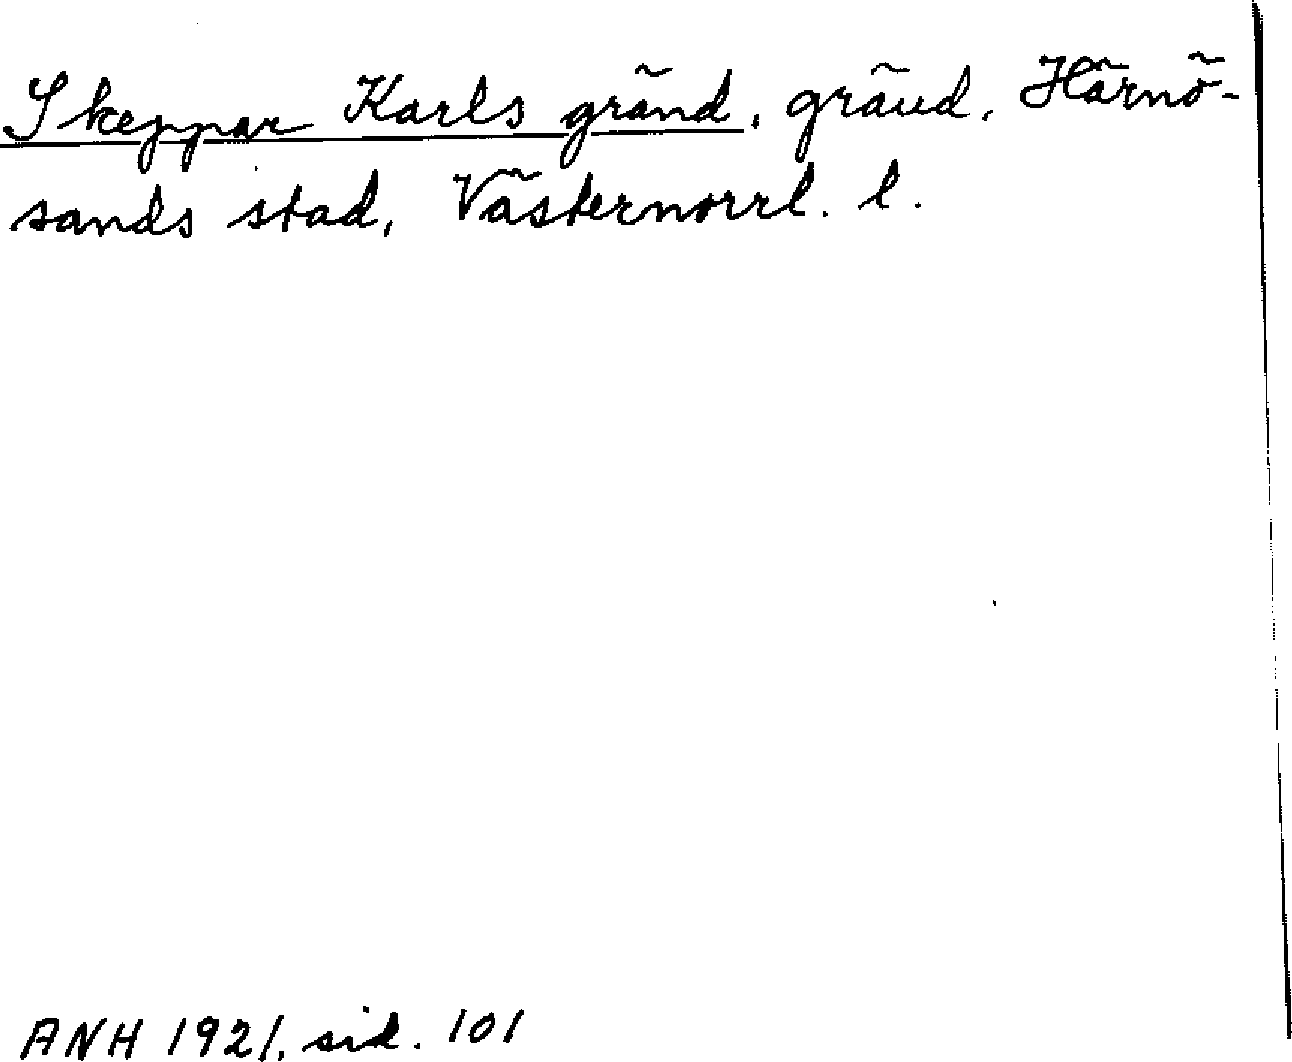 Skeppar Karls gränd, gränd, Härnö-
sands stad, Västernorrl. l.
ANH 1921, sid. 101